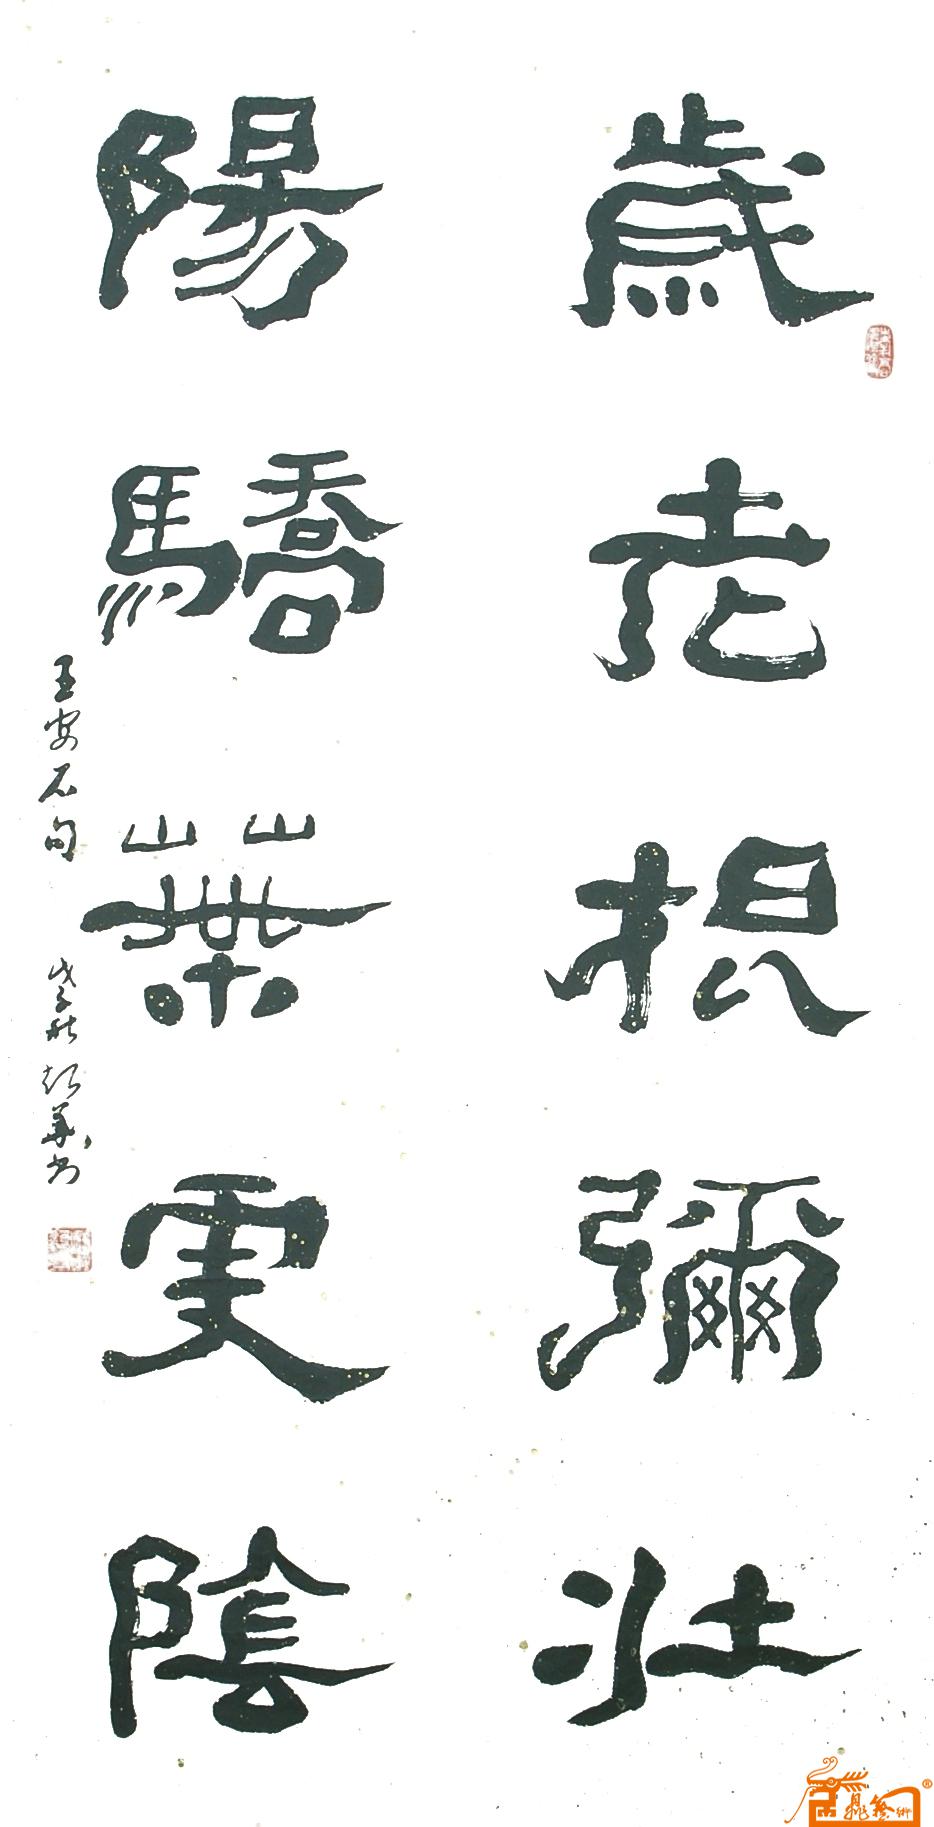 歲老根彌壯
陽驕葉更陰
王安石句 戊子秋 彭華书